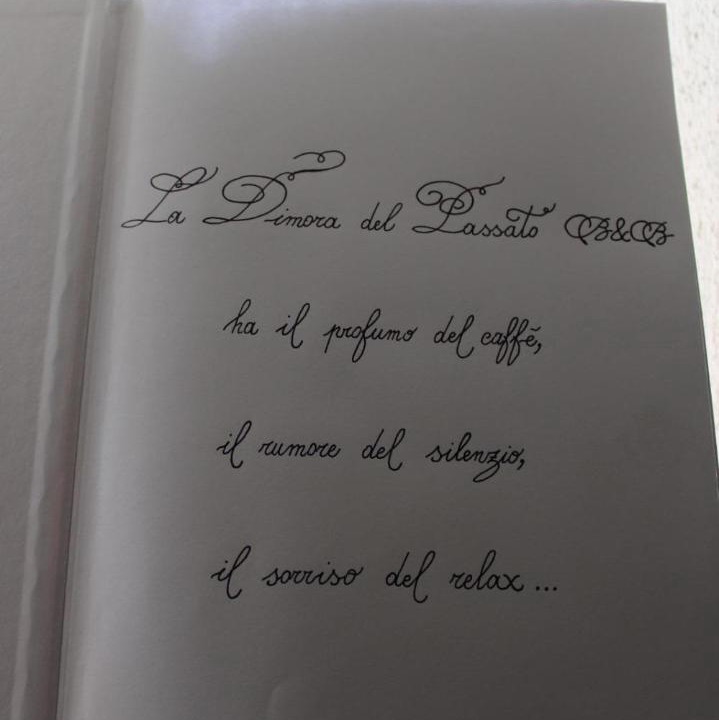 La Dimora del Passato B&B
ha il profumo del caffè,
il rumore del silenzio,
il sorriso del relax...